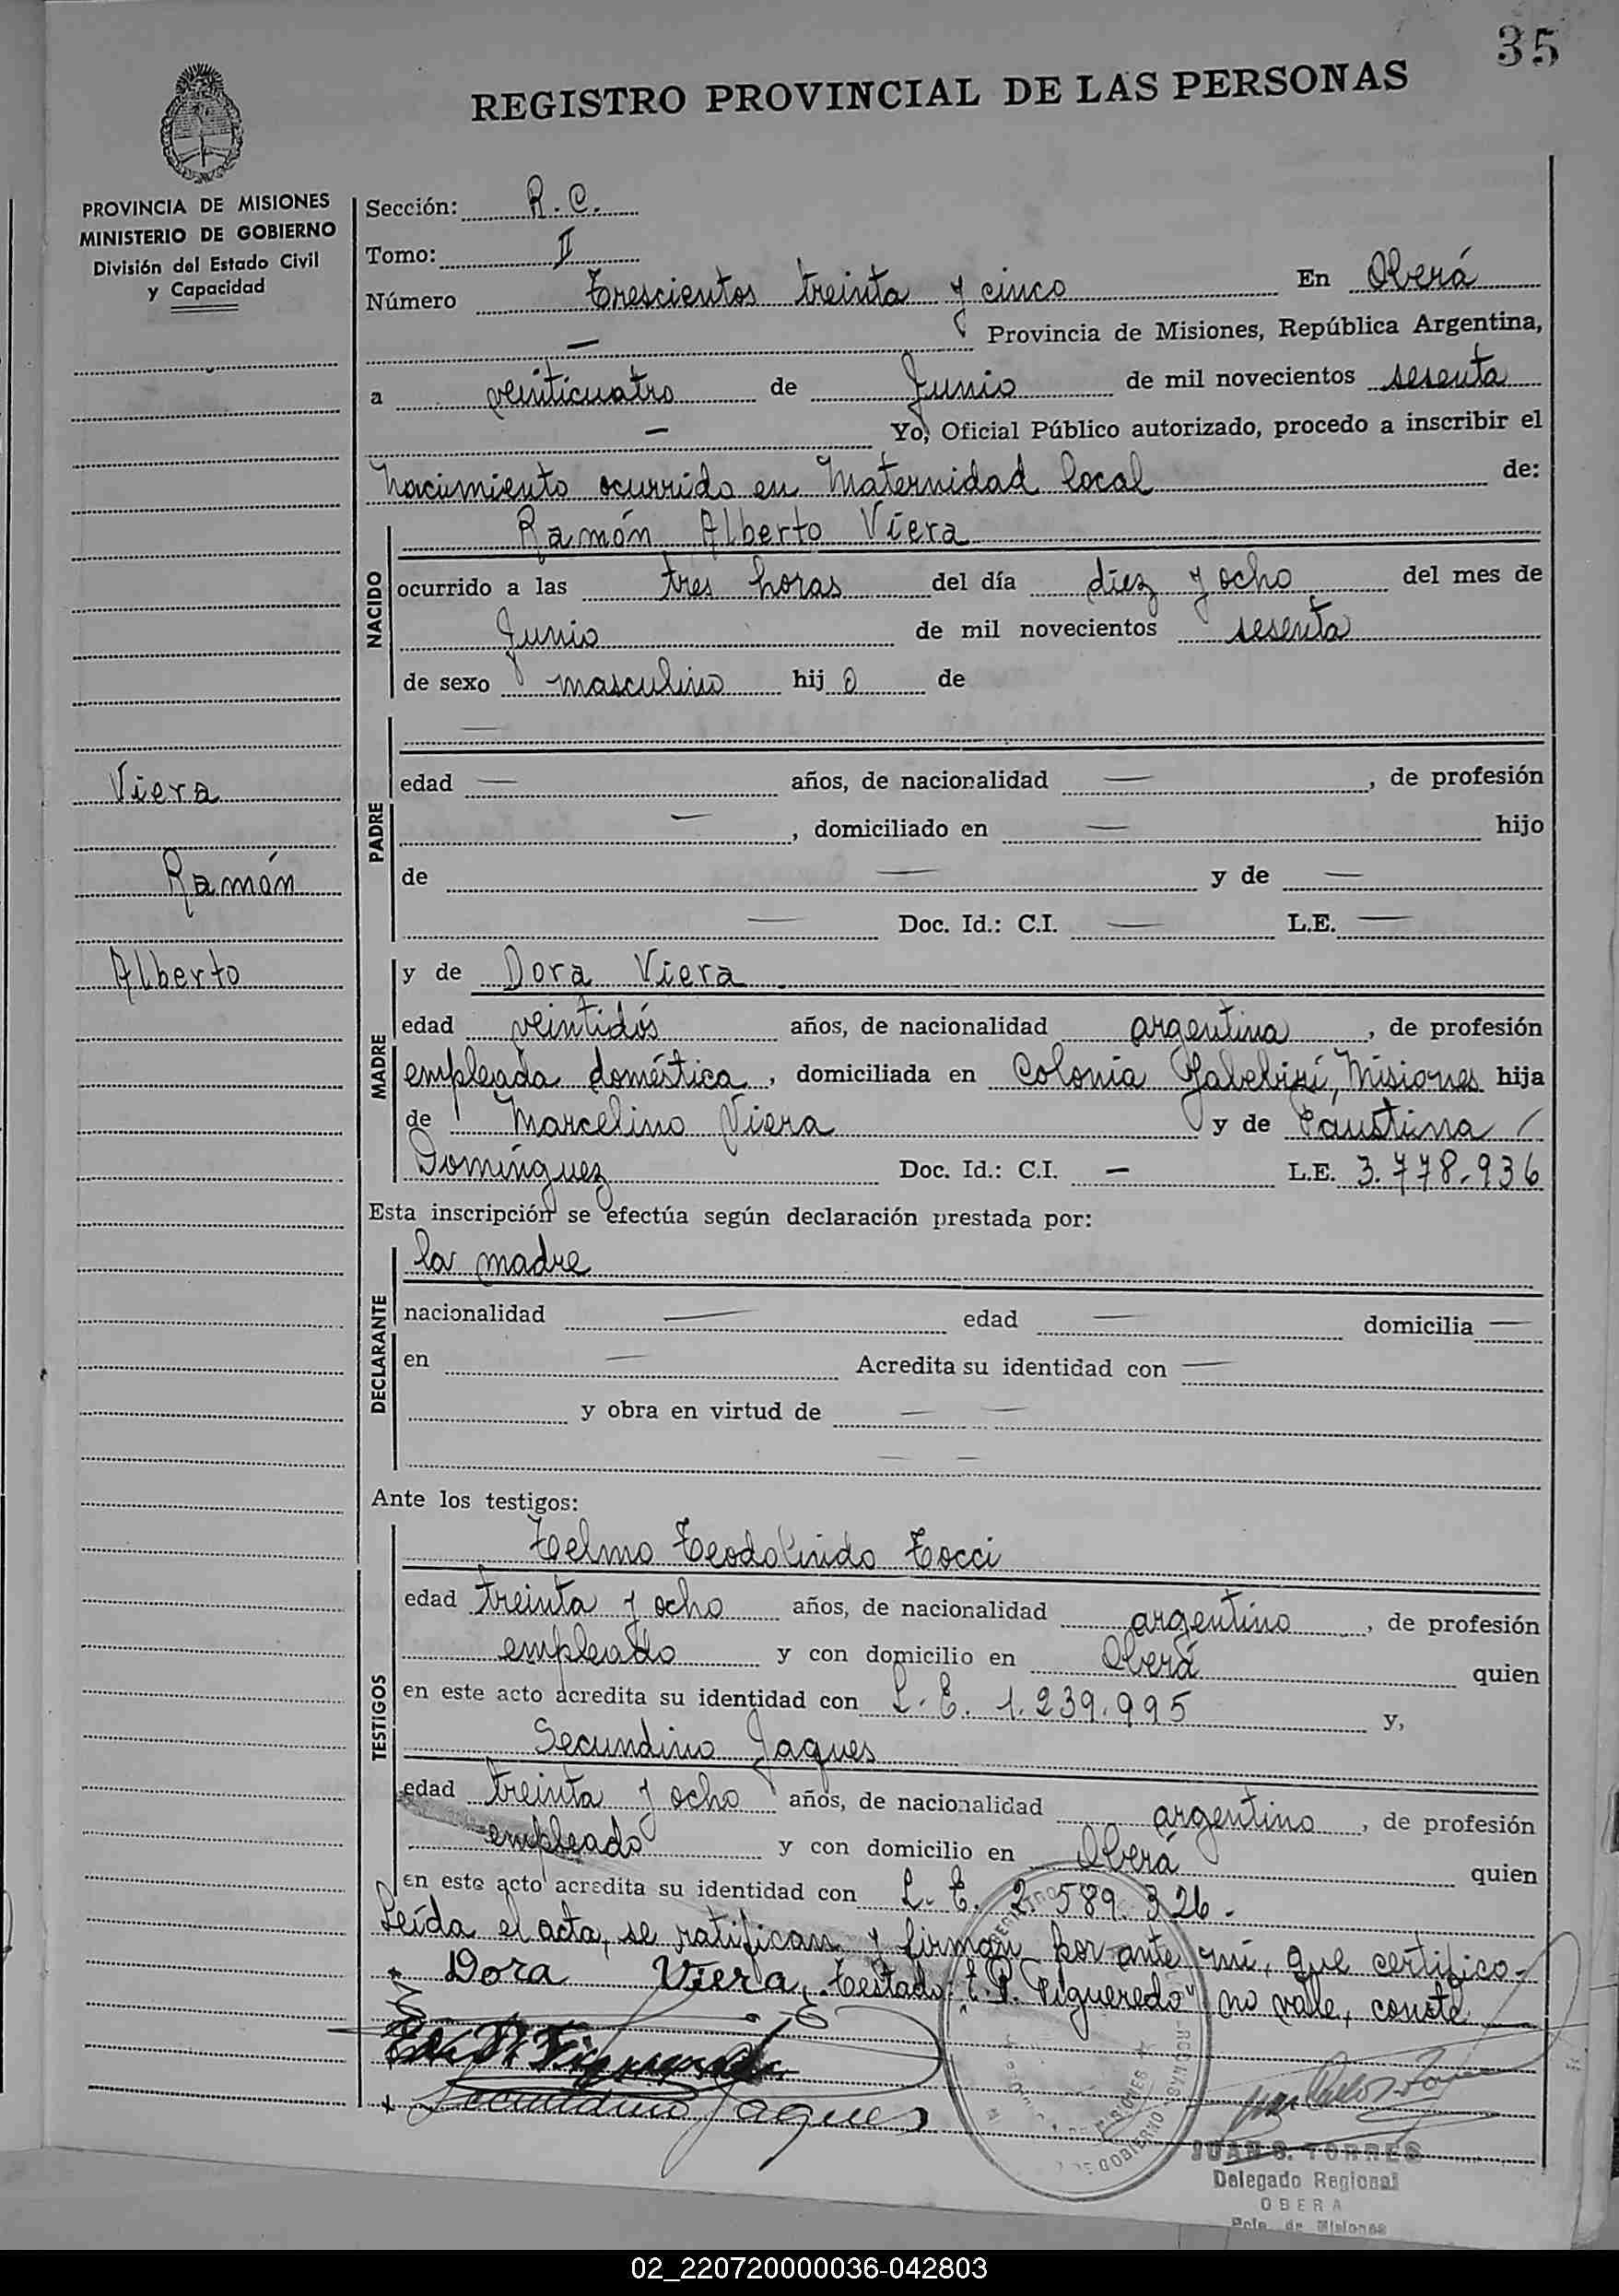 35
REGISTRO PROVINCIAL DE LAS PERSONAS
PROVINCIA DE MISIONES
MINISTERIO DE GOBIERNO
División del Estado Civil
y Capacidad
Sección: R. C.
Tomo: II
Número Trescientos treinta y cinco En Oberá
— Provincia de Misiones, República Argentina,
a veinticuatro de Junio de mil novecientos sesenta
— Yo, Oficial Público autorizado, procedo a inscribir el
nacimiento ocurrido en Maternidad local de:
NACIDO
Ramón Alberto Viera
ocurrido a las tres horas del día diez y ocho del mes de
Junio de mil novecientos sesenta
de sexo masculino hijo de
PADRE
—
edad — años, de nacionalidad —, de profesión
—, domiciliado en — hijo
de — y de —
— Doc. Id.: C.I. — L.E. —
Viera
Ramón
Alberto
MADRE
y de Dora Viera
edad veintidós años, de nacionalidad argentina, de profesión
empleada doméstica, domiciliada en Colonia Misiones hija
de Marcelino Viera y de Faustina
Domínguez Doc. Id.: C.I. — L.E. 3.778.936
Esta inscripción se efectúa según declaración prestada por:
DECLARANTE
la madre
nacionalidad — edad — domicilia —
en — Acredita su identidad con —
y obra en virtud de — —
— —
Ante los testigos:
TESTIGOS
Telmo Teodolindo Tocci
edad treinta y ocho años, de nacionalidad argentino, de profesión
empleado y con domicilio en Oberá quien
en este acto acredita su identidad con L. E. 1.239.995 y,
Secundino Jaques
edad treinta y ocho años, de nacionalidad argentino, de profesión
empleado y con domicilio en Oberá quien
en este acto acredita su identidad con L. E. 2.589.326.-
Leída el acta, se ratifican y firman por ante mí, que certifico.-
Dora Viera. Testado: "E.P. Figueredo" no vale, conste.
Secundino Jaques
MISIONES
DE GOBIERNO
JUAN C. TORRES
Delegado Regional
OBERA
Pcia. de Misiones
02_220720000036-042803